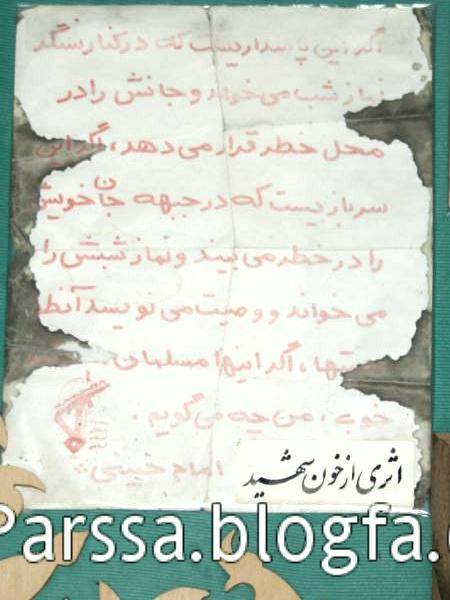 اگر این پاسداریست که در کنار سنگر
نماز شب می‌خواند و جانش را در
محل خطر قرار می‌دهد، اگر این
سربازیست که در جبهه جان خویش
را در خطر می بیند و نماز شبش را
می خواند و وصیت می نویسد آنطور
اگر اینها مسلمان
خوب، من چه می گویم.
امام خمینی
اثری از خون شهید
Parssa.blogfa.